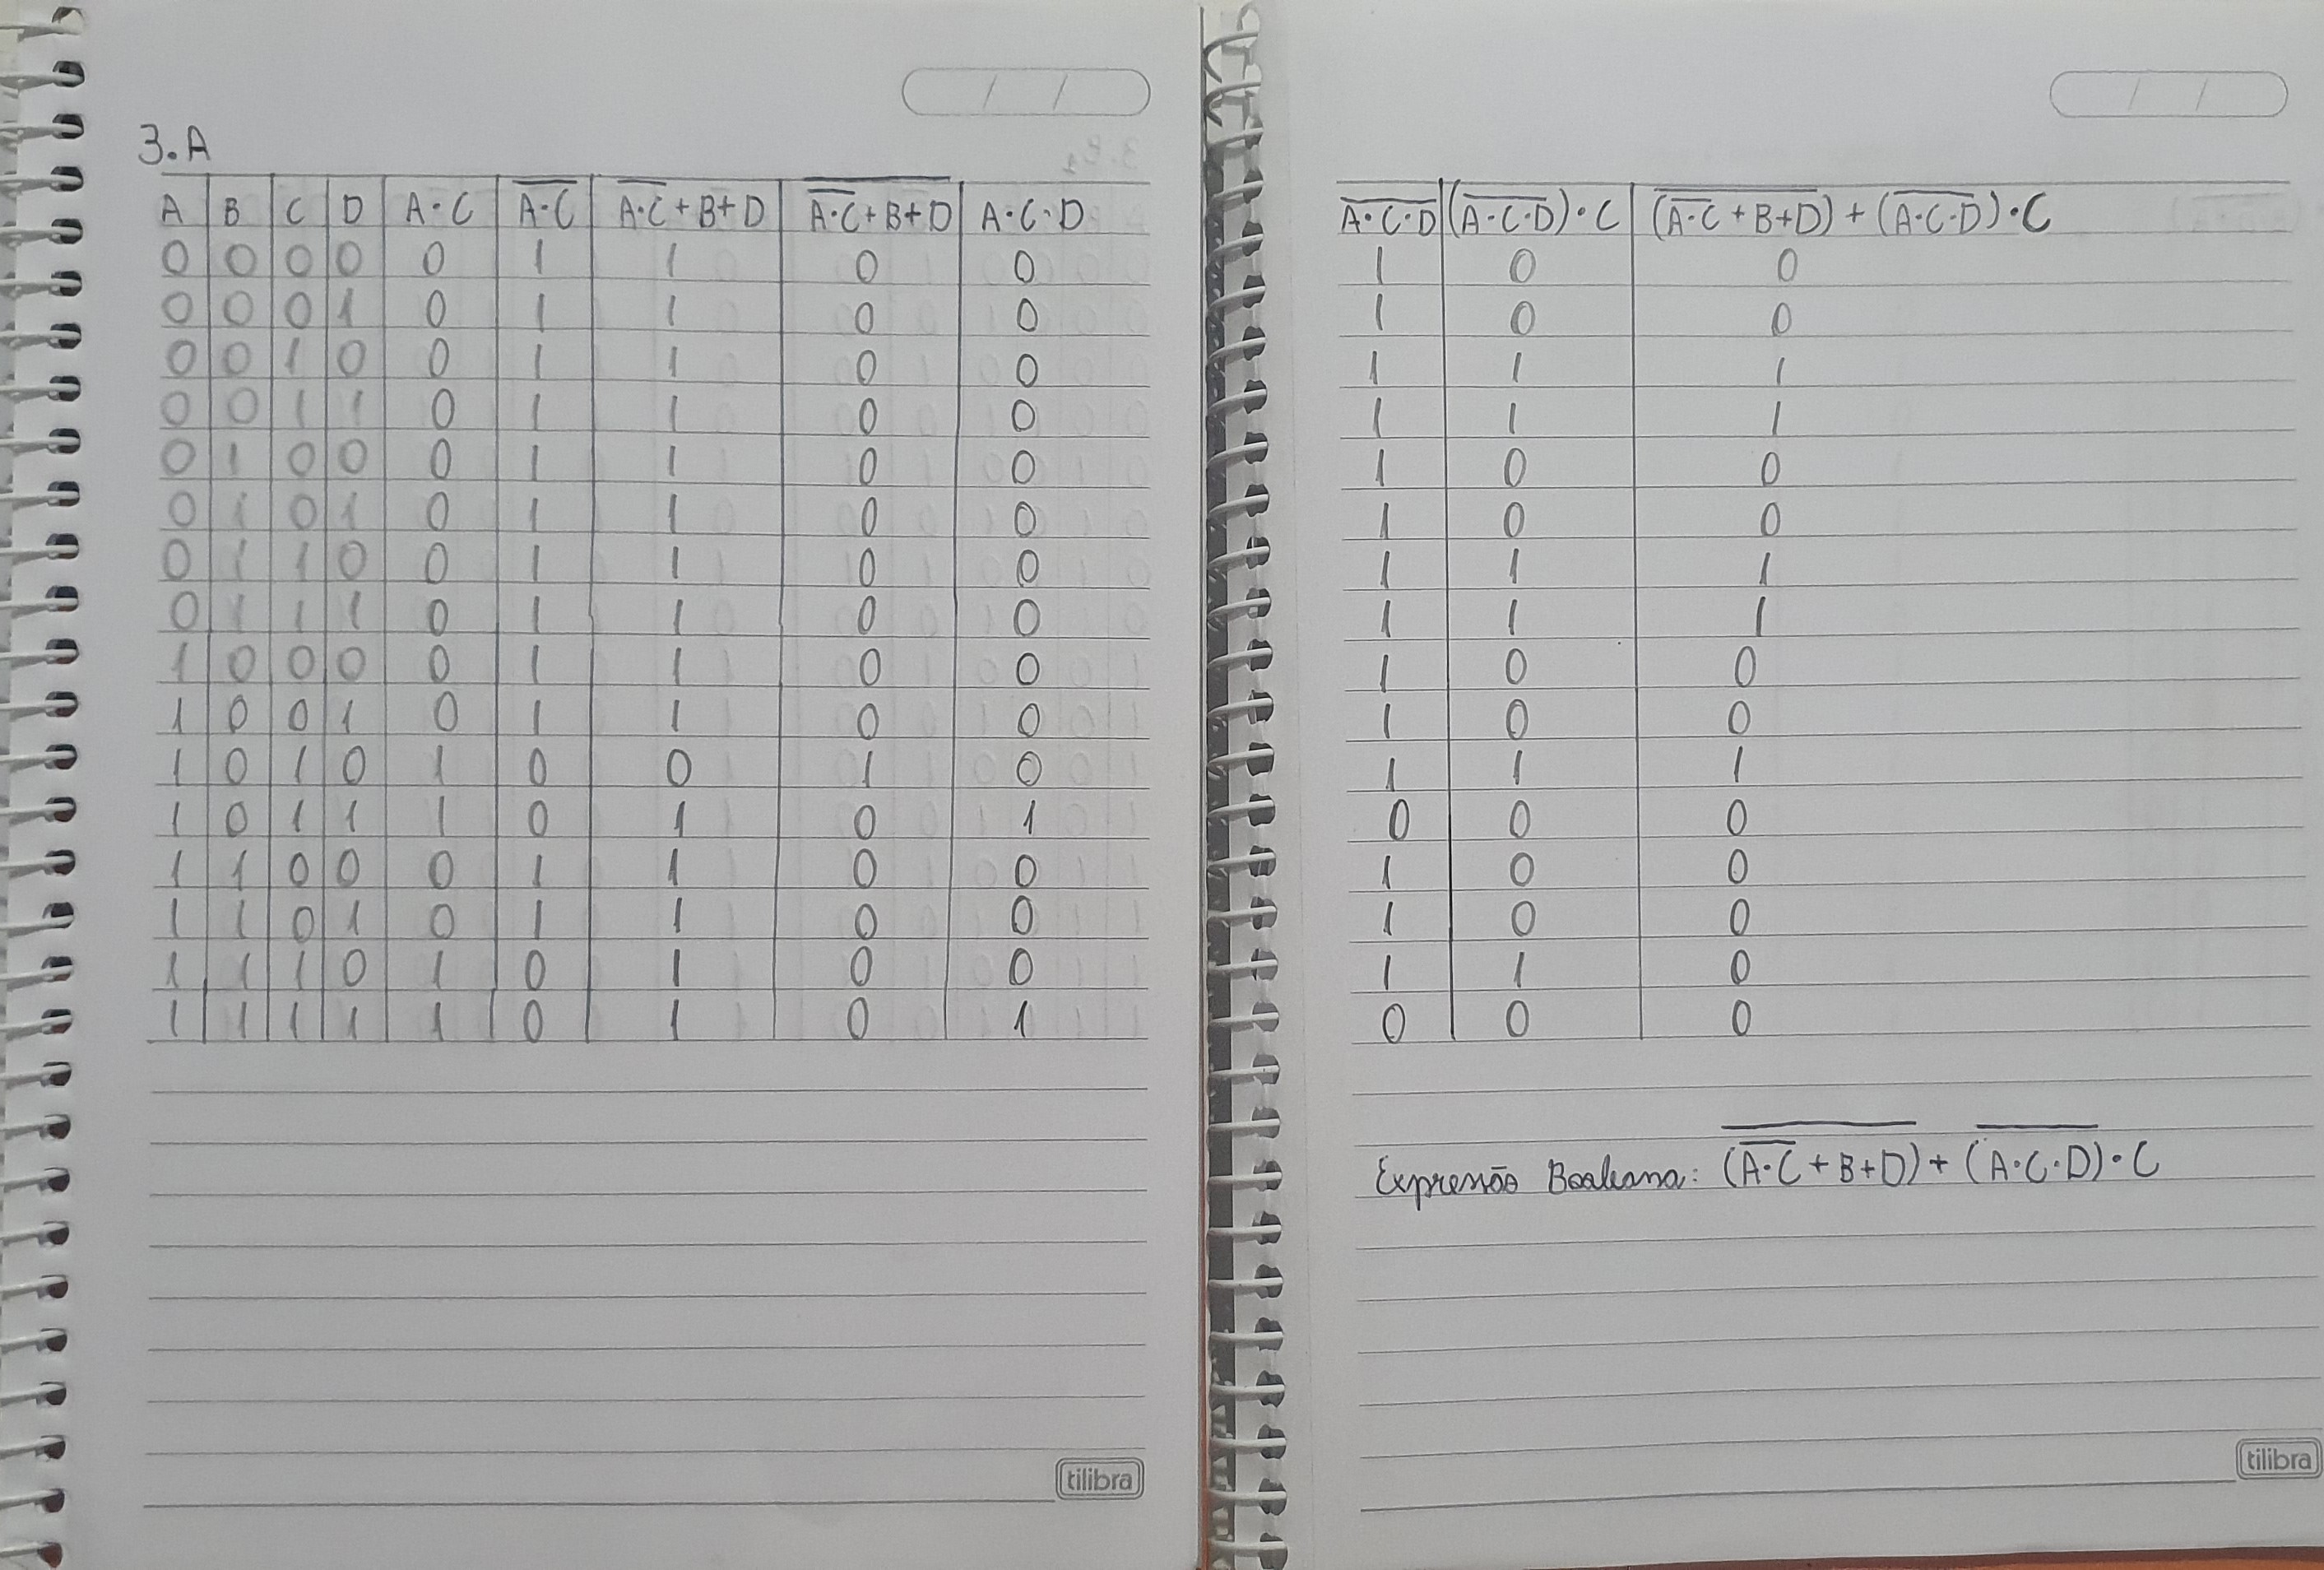 3.A
A B C D A·C A̅·̅C̅ A̅·̅C̅+B+D \overline{\overline{A·C}+B+D} A·C·D
0 0 0 0 0 1 1 0 0
0 0 0 1 0 1 1 0 0
0 0 1 0 0 1 1 0 0
0 0 1 1 0 1 1 0 0
0 1 0 0 0 1 1 0 0
0 1 0 1 0 1 1 0 0
0 1 1 0 0 1 1 0 0
0 1 1 1 0 1 1 0 0
1 0 0 0 0 1 1 0 0
1 0 0 1 0 1 1 0 0
1 0 1 0 1 0 0 1 0
1 0 1 1 1 0 1 0 1
1 1 0 0 0 1 1 0 0
1 1 0 1 0 1 1 0 0
1 1 1 0 1 0 1 0 0
1 1 1 1 1 0 1 0 1
tilibra
\overline{A·C·D} (\overline{A·C·D})·C (\overline{\overline{A·C}+B+D})+(\overline{A·C·D})·C
1 0 0
1 0 0
1 1 1
1 1 1
1 0 0
1 0 0
1 1 1
1 1 1
1 0 0
1 0 0
1 1 1
0 0 0
1 0 0
1 0 0
1 1 0
0 0 0
Expressão Booleana: \overline{(\overline{A·C}+B+D)}+\overline{(A·C·D)}·C
tilibra